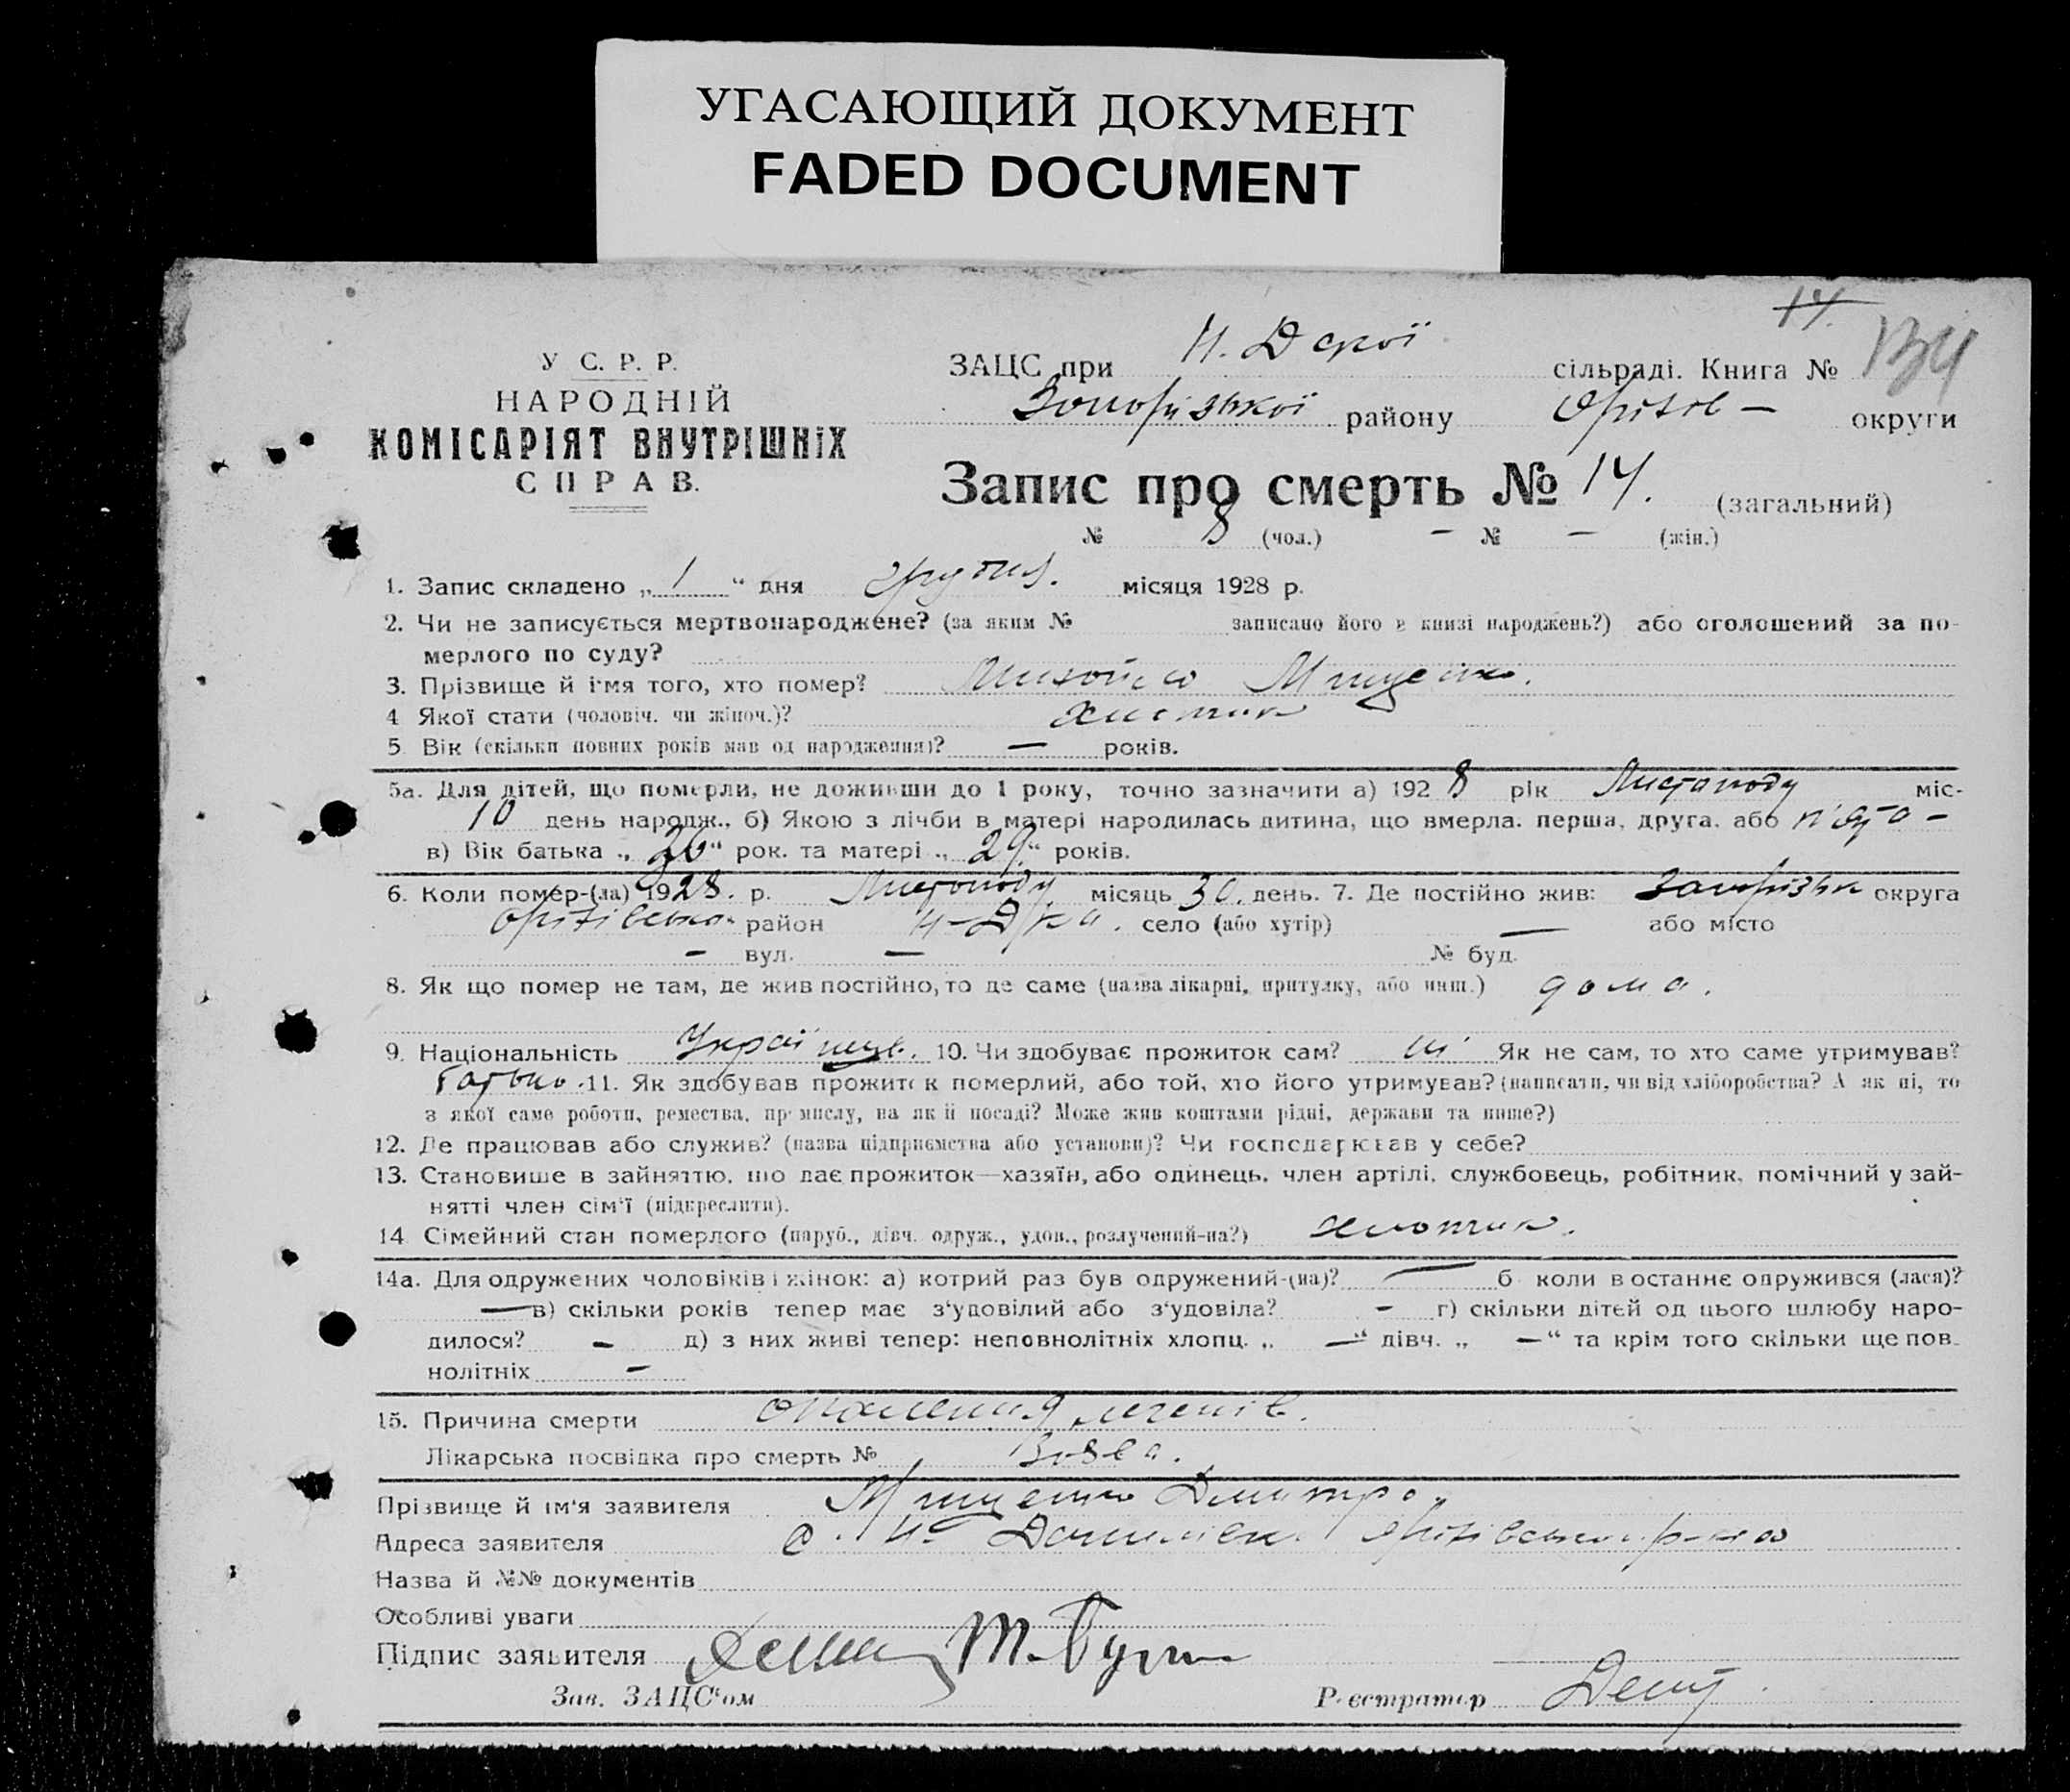 УГАСАЮЩИЙ ДОКУМЕНТ
FADED DOCUMENT
14.
У С. Р. Р.
НАРОДНІЙ
КОМІСАРІЯТ ВНУТРІШНІХ
СПРАВ.
ЗАЦС при Н. сільраді. Книга №
району Оріхів – округи
Запис про смерть № 14. (загальний)
№ 8 (чол.) – № – (жін.)
1. Запис складено „ 1 “ дня грудня. місяця 1928 р.
2. Чи не записується мертвонароджене? (за яким № записано його в книзі народжень?) або оголошений за по-
мерлого по суду?
3. Прізвище й імя того, хто помер? Михайло Мищенко.
4 Якої стати (чоловіч. чи жіноч.)? хлопчик
5. Вік (скільки повних років мав од народження)? — років.
5а. Для дітей, що померли, не доживши до 1 року, точно зазначити а) 1928 рік Листопаду міс-
10 день народж., б) Якою з лічби в матері народилась дитина, що вмерла. перша, друга. або п'ята –
в) Вік батька „ 26 “ рок. та матері „ 29. “ років.
6. Коли помер-(ла) 1928. р. Листопаду місяць 30. день. 7. Де постійно жив: округа
Оріхівськ. район село (або хутір) — або місто
– вул. — № буд.
8. Як що помер не там, де жив постійно, то де саме (назва лікарні, притулку, або инш.) дома.
9. Національність 10. Чи здобуває прожиток сам? ні Як не сам, то хто саме утримував?
Батько. 11. Як здобував прожиток померлий, або той, хто його утримував? (написати, чи від хліборобства? А як ні, то
з якої саме роботи, ремества, промислу, на якій посаді? Може жив коштами рідні, держави та инше?)
12. Де працював або служив? (назва підприємства або установи)? Чи господарював у себе?
13. Становище в зайняттю, що дає прожиток—хазяїн, або одинець, член артілі, службовець, робітник, помічний у зай-
нятті член сім'ї (підкреслити).
14 Сімейний стан померлого (паруб., дівч. одруж., удов., розлучений-на?) хлопчик.
14а. Для одружених чоловіків і жінок: а) котрий раз був одружений-(на)? — б коли в останнє одружився (лася)?
— в) скільки років тепер має з'удовілий або з'удовіла? – г) скільки дітей од цього шлюбу наро-
дилося? – д) з них живі тепер: неповнолітніх хлопц. „ — “ дівч. „ — “ та крім того скільки ще пов-
нолітніх –
15. Причина смерти опалення легенів.
Лікарська посвідка про смерть №
Прізвище й ім'я заявителя Мищенко Дмитро.
Адреса заявителя с. Н Оріхівськ. р-на
Назва й №№ документів
Особливі уваги
Підпис заявителя
Зав. ЗАЦС'ом Реєстратор